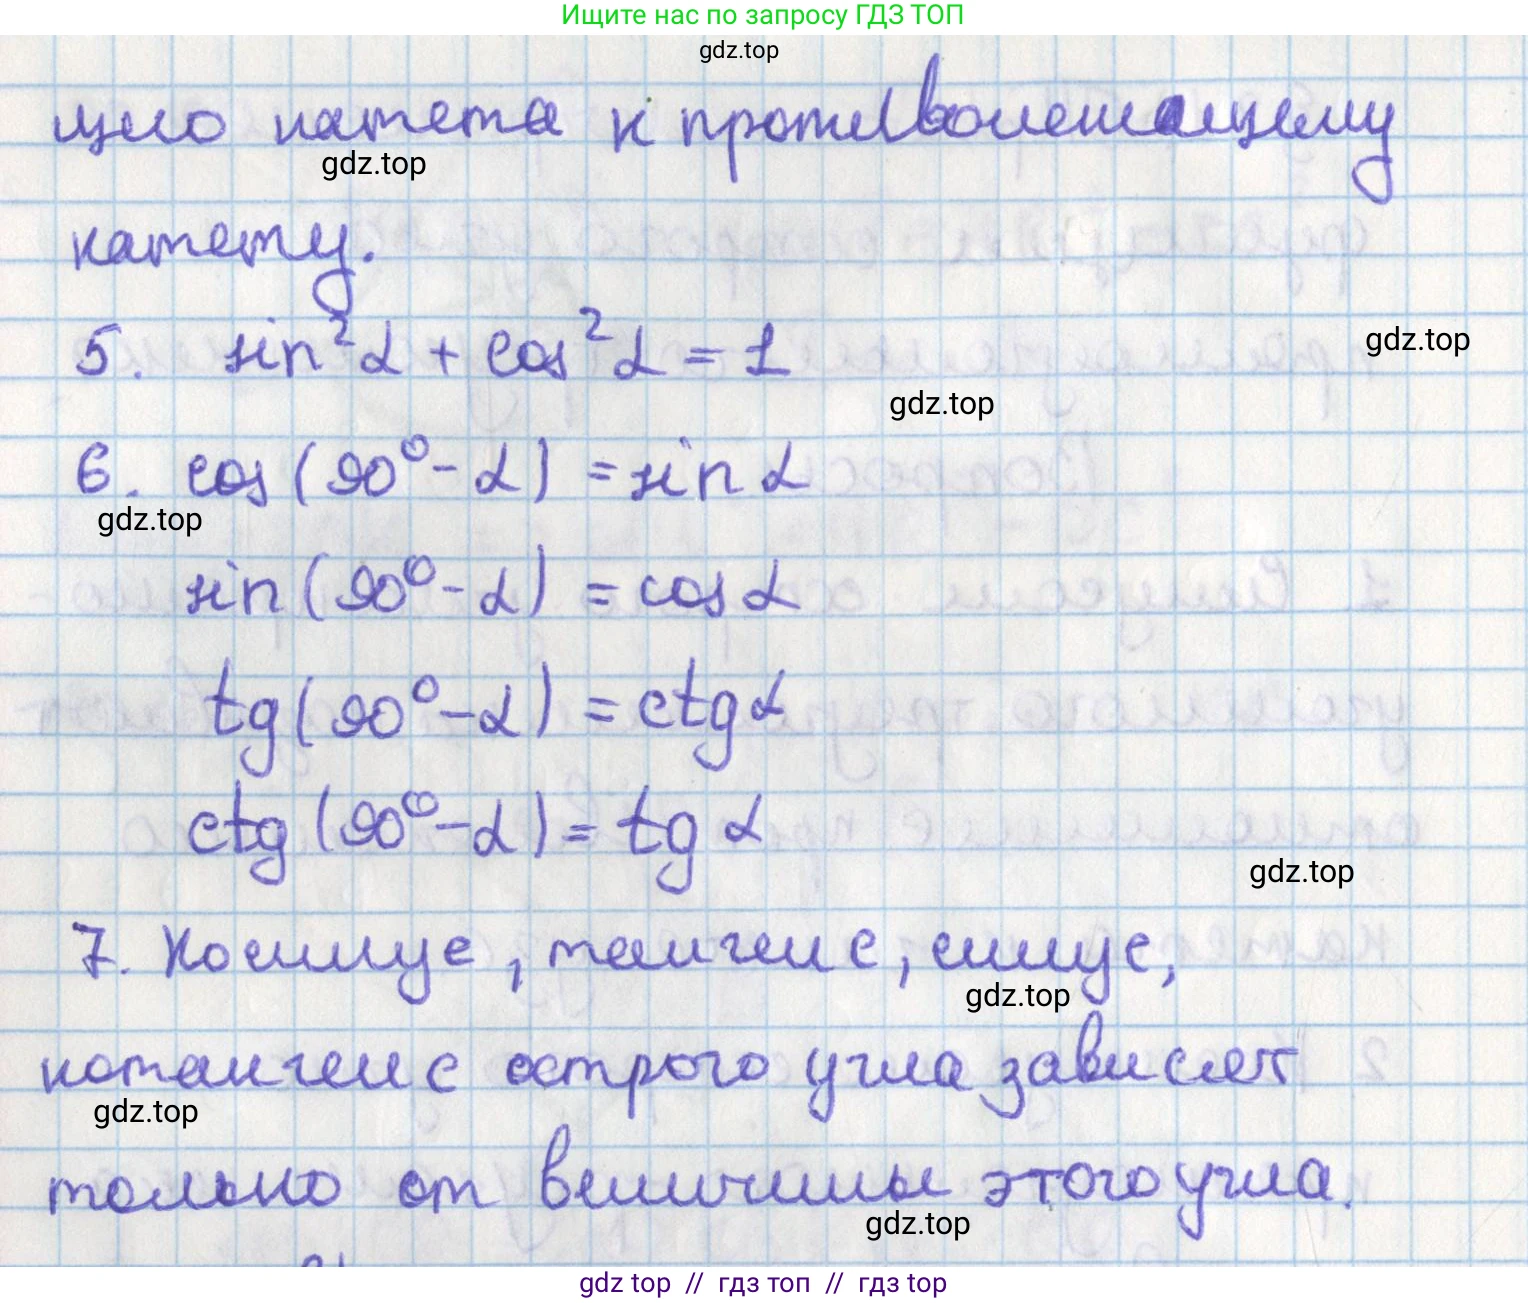 Ищите нас по запросу ГДЗ ТОП
gdz.top
щего катета к противолежащему
gdz.top
катету.
5. sin²α + cos²α = 1
gdz.top
gdz.top
6. cos(90⁰-α) = sin α
gdz.top
sin(90⁰-α) = cos α
tg(90⁰-α) = ctg α
ctg(90⁰-α) = tg α
gdz.top
7. Косинус, тангенс, синус,
gdz.top
котангенс острого угла зависят
gdz.top
только от величины этого угла.
gdz.top
gdz top // гдз топ // гдз top